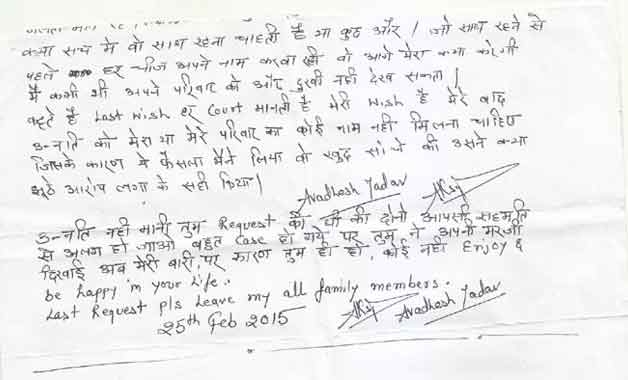 क्या सच मे वो साथ रहना चाहती है या कुछ और / जो साथ रहने से
पहले हर चीज अपने नाम करवा रही वो आगे मेरा क्या करेगी
मैं कभी भी अपने परिवार को और दुखी नही देख सकता /
कहते है Last wish हर Court मानती है मेरी wish है मेरे बाद
उन्नति को मेरा या मेरे परिवार का कोई नाम नही मिलना चाहिए
जिसके कारण ये फैसला मैंने लिया वो खुद सोचे की उसने क्या
झूठे आरोप लगा के सही किया /
Avadhesh Yadav
उन्नति नही मानी तुम Request की थी की दोनो आपसी सहमति
से अलग हो जाओ बहुत Case हो गये पर तुम ने अपनी मरजी
दिखाई अब मेरी बारी, पर कारण तुम ही हो, कोई नही Enjoy &
be happy in your Life.
Last Request pls Leave my all family members.
25th Feb 2015
Avadhesh Yadav